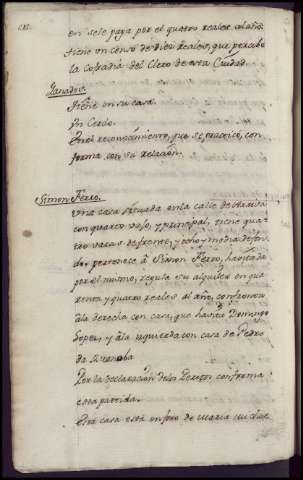 en sele paga por el quatro reales al año
tiene un censo de diez reales, que percibe
la cofradia del Clero de esta Ciudad.
Ganados
Tiene en su casa.
Un Cerdo.
En el reconocimiento, que se practicó, con
forma con su relacion.
Simon Ferro.
Una casa situada en la calle de
con quarto vajo, y principal, tiene qua
tro varas de frente, y ocho y media de fon
do, pertenece â Simon Ferro, havitada
por el mismo, regula su alquiler en qua
renta y quatro reales al año, confronta
âla derecha con casa, que havita Domingo
Lopez, y âla izquierda con casa de Pedro
de
Por la declaracion delos Peritos conforma
esta partida.
Esta casa está en foro de